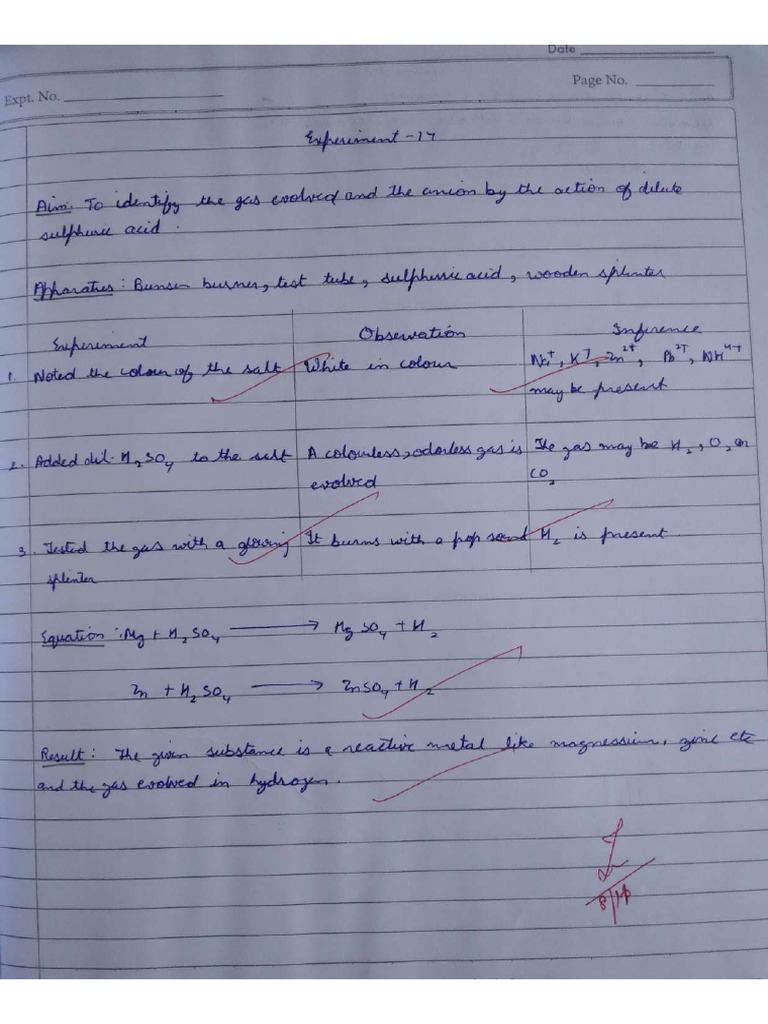 Date
Expt. No.
Page No.
Experiment -14
Aim: To identify the gas evolved and the anion by the action of dilute
sulphuric acid.
Apparatus: Bunsen burner, test tube, sulphuric acid, wooden splinter
Experiment Observation Inference
1. Noted the colour of the salt White in colour Na+, K+, Zn2+, Pb2+, NH4+
may be present
2. Added dil. H2SO4 to the salt A colourless, odorless gas is The gas may be H2, O2 or
evolved CO2
3. Tested the gas with a glowing It burns with a pop sound H2 is present.
splinter
Equation: Mg + H2SO4 ⟶ MgSO4 + H2
Zn + H2SO4 ⟶ ZnSO4 + H2
Result: The given substance is a reactive metal like magnessium, zinc etc
and the gas evolved in hydrogen.